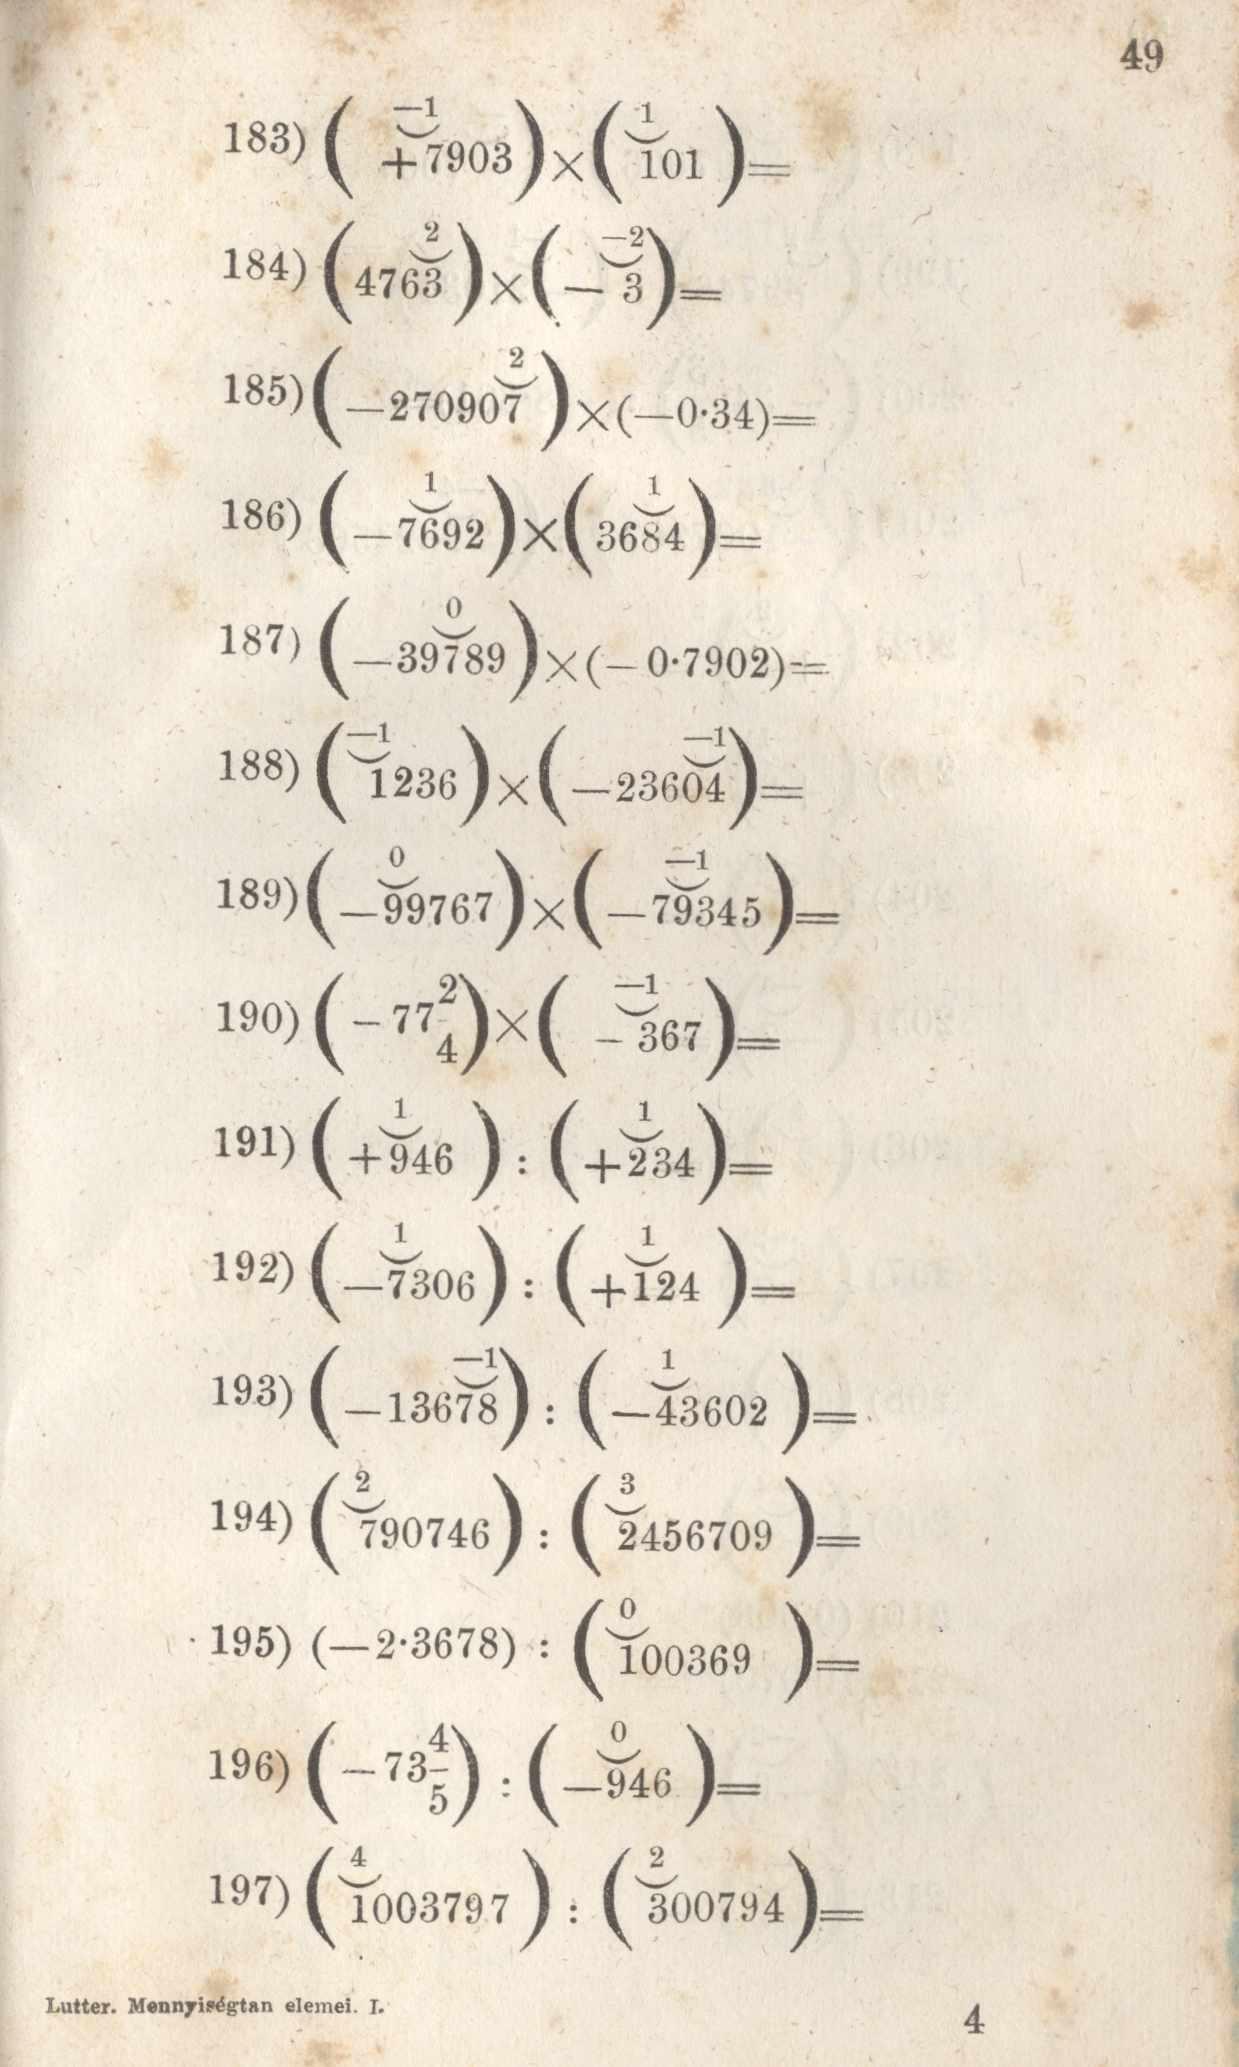 49
183) (+7903^{-1}) × (101^{1}) =
184) (4763^{2}) × (−3^{-2}) =
185) (−270907^{2}) × (−0·34) =
186) (−7692^{1}) × (3684^{1}) =
187) (−39789^{0}) × (−0·7902) =
188) (1236^{-1}) × (−23604^{-1}) =
189) (−99767^{0}) × (−79345^{-1}) =
190) (−77 2/4) × (−367^{-1}) =
191) (+946^{1}) : (+234^{1}) =
192) (−7306^{1}) : (+124^{1}) =
193) (−13678^{-1}) : (−43602^{1}) =
194) (790746^{2}) : (2456709^{3}) =
195) (−2·3678) : (100369^{0}) =
196) (−73 4/5) : (−946^{0}) =
197) (1003797^{4}) : (300794^{2}) =
Lutter. Mennyiségtan elemei. I.
4